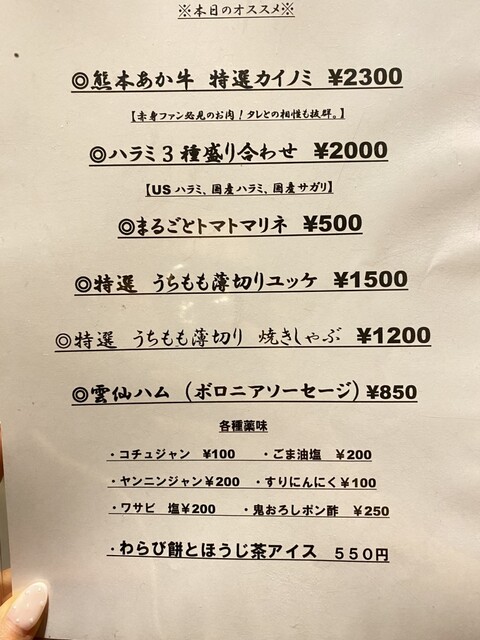 ※本日のオススメ※
◎熊本あか牛 特選カイノミ ¥2300
【赤身ファン必見のお肉！タレとの相性も抜群。】
◎ハラミ3種盛り合わせ ¥2000
【USハラミ、国産ハラミ、国産サガリ】
◎まるごとトマトマリネ ¥500
◎特選 うちもも薄切りユッケ ¥1500
◎特選 うちもも薄切り 焼きしゃぶ ¥1200
◎雲仙ハム (ボロニアソーセージ) ¥850
各種薬味
・コチュジャン ¥100 ・ごま油塩 ¥200
・ヤンニンジャン¥200 ・すりにんにく¥100
・ワサビ 塩¥200 ・鬼おろしポン酢 ¥250
・わらび餅とほうじ茶アイス 550円